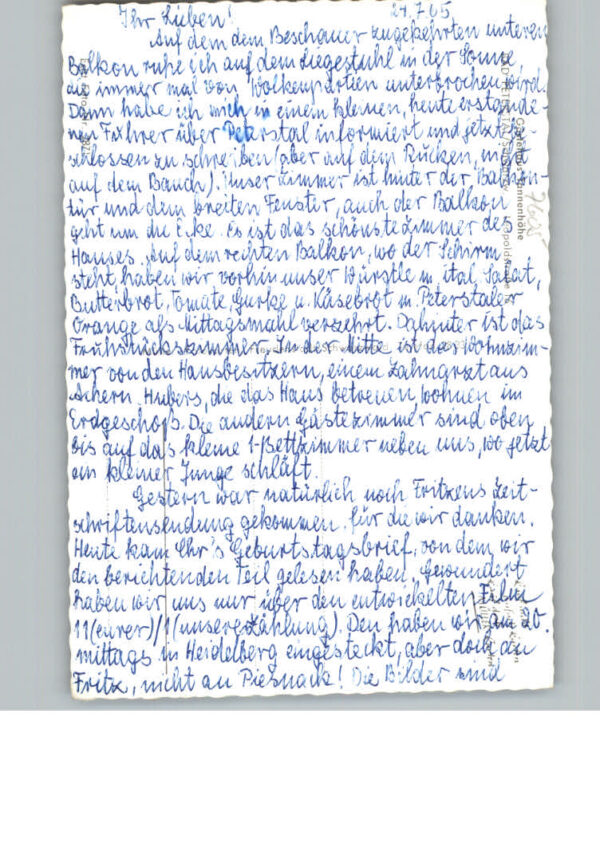 24.7.65
Ihr Lieben!
Auf dem dem Beschauer zugekehrten unteren
Balkon ruhe ich auf dem Liegestuhl in der Sonne,
die immer mal von Wolkenpartien unterbrochen wird.
Dann habe ich mich in einem kleinen, heute erstande-
nen Führer über Peterstal informiert und jetzt
schlossen zu schreiben (aber auf dem Rücken, nicht
auf dem Bauch). Unser Zimmer ist hinter der Balkon-
tür und dem breiten Fenster, auch der Balkon
geht um die Ecke. Es ist das schönste Zimmer des
Hauses. Auf dem rechten Balkon, wo der Schirm
steht, haben wir vorhin unser Würstle m. ital. Salat,
Butterbrot, Tomate, Gurke u. Käsebrot m. Peterstaler
Orange als Mittagsmahl verzehrt. Dahinter ist das
Frühstückszimmer. In der Mitte ist das Wohnzim-
mer von den Hausbesitzern, einem Zahnarzt aus
Achern. Hubers, die das Haus betreuen, wohnen im
Erdgeschoß. Die andern Gästezimmer sind oben
bis auf das kleine 1-Bettzimmer neben uns, wo jetzt
ein kleiner Junge schläft.
Gestern war natürlich noch Fritzens Zeit-
schriftensendung gekommen, für die wir danken.
Heute kam Chr's Geburtstagsbrief, von dem wir
den berichtenden Teil gelesen haben. Gewundert
haben wir uns nur über den entwickelten Film
11 (eurer)/1 (unserer Zählung). Den haben wir am 20.
mittags in Heidelberg eingesteckt, aber doch an
Fritz, nicht an Piesnack! Die Bilder sind